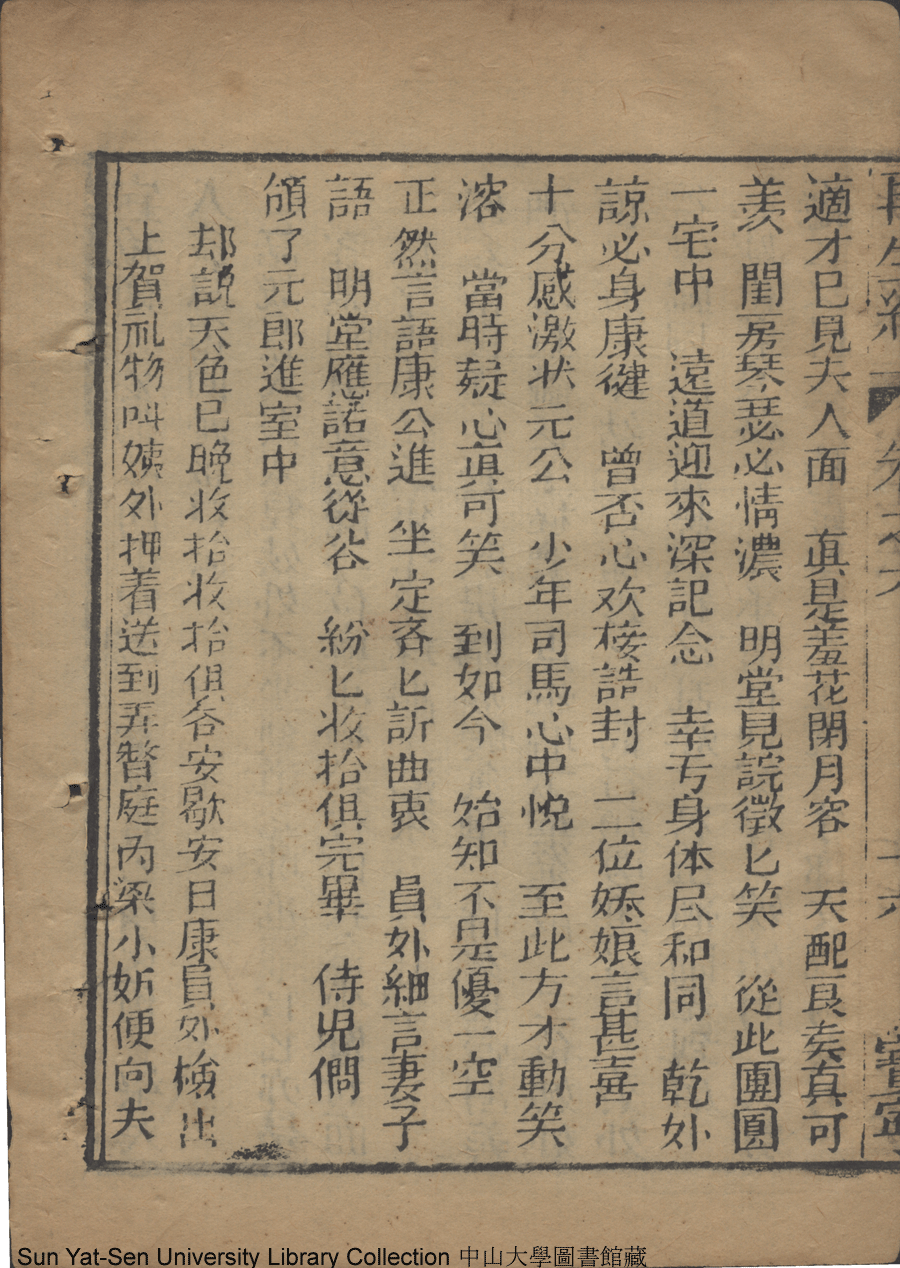 再生緣 卷之六 十六 寶寧
適才已見夫人面　真是羞花閉月容　天配良矣真可
羨　閨房琴瑟必情濃　明堂見説微匕笑　從此團圓
一宅中　遠道迎來深記念　幸亏身体尽和同　乾外
諒必身康健　曾否心欢接誥封　二位妖娘言甚喜
十分感激状元公　少年司馬心中悦　至此方才動笑
溶　當時疑心真可笑　到如今　始知不是優一空
正然言語康公進　坐定吝匕訴曲衷　員外細言妻子
語　明堂應諾意從谷　紛匕收拾俱完畢　侍児僴
頎了元郎進室中
却説天色已晚收拾收拾俱各安歇安日康員外檢出
上賀礼物叫姨外押着送到弄督庭内梁小妡便向夫
Sun Yat-Sen University Library Collection 中山大學圖書館藏